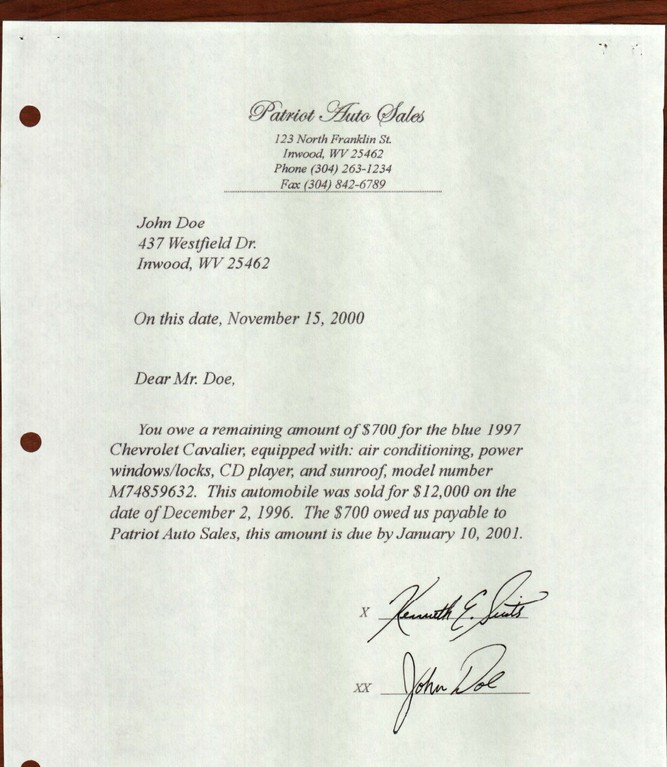 Patriot Auto Sales
123 North Franklin St.
Inwood, WV 25462
Phone (304) 263-1234
Fax (304) 842-6789
John Doe
437 Westfield Dr.
Inwood, WV 25462
On this date, November 15, 2000
Dear Mr. Doe,
You owe a remaining amount of $700 for the blue 1997
Chevrolet Cavalier, equipped with: air conditioning, power
windows/locks, CD player, and sunroof, model number
M74859632. This automobile was sold for $12,000 on the
date of December 2, 1996. The $700 owed us payable to
Patriot Auto Sales, this amount is due by January 10, 2001.
X Kenneth E.
XX John Doe